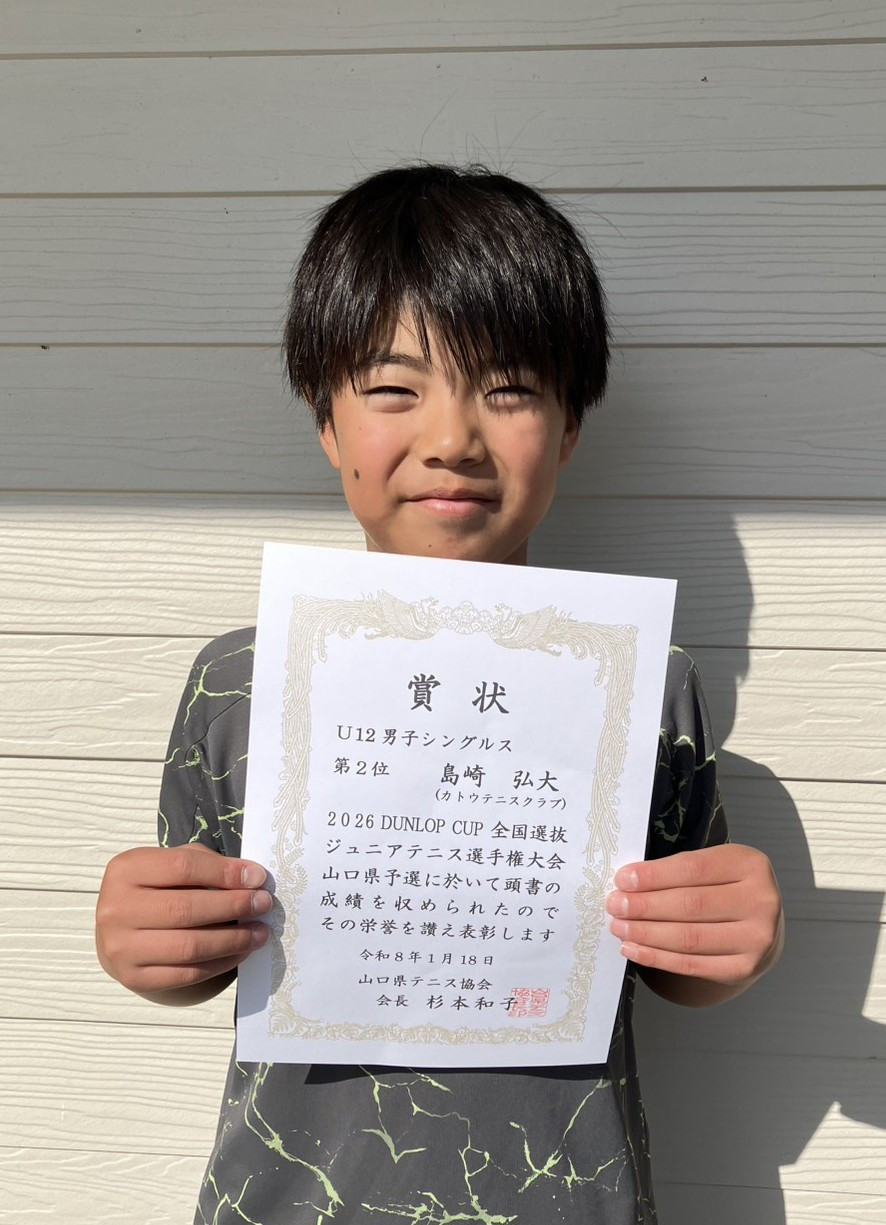 賞状
U12男子シングルス
第2位 島崎 弘大
(カトウテニスクラブ)
2026 DUNLOP CUP 全国選抜
ジュニアテニス選手権大会
山口県予選に於いて頭書の
成績を収められたので
その栄誉を讃え表彰します
令和8年1月18日
山口県テニス協会
会長 杉本和子